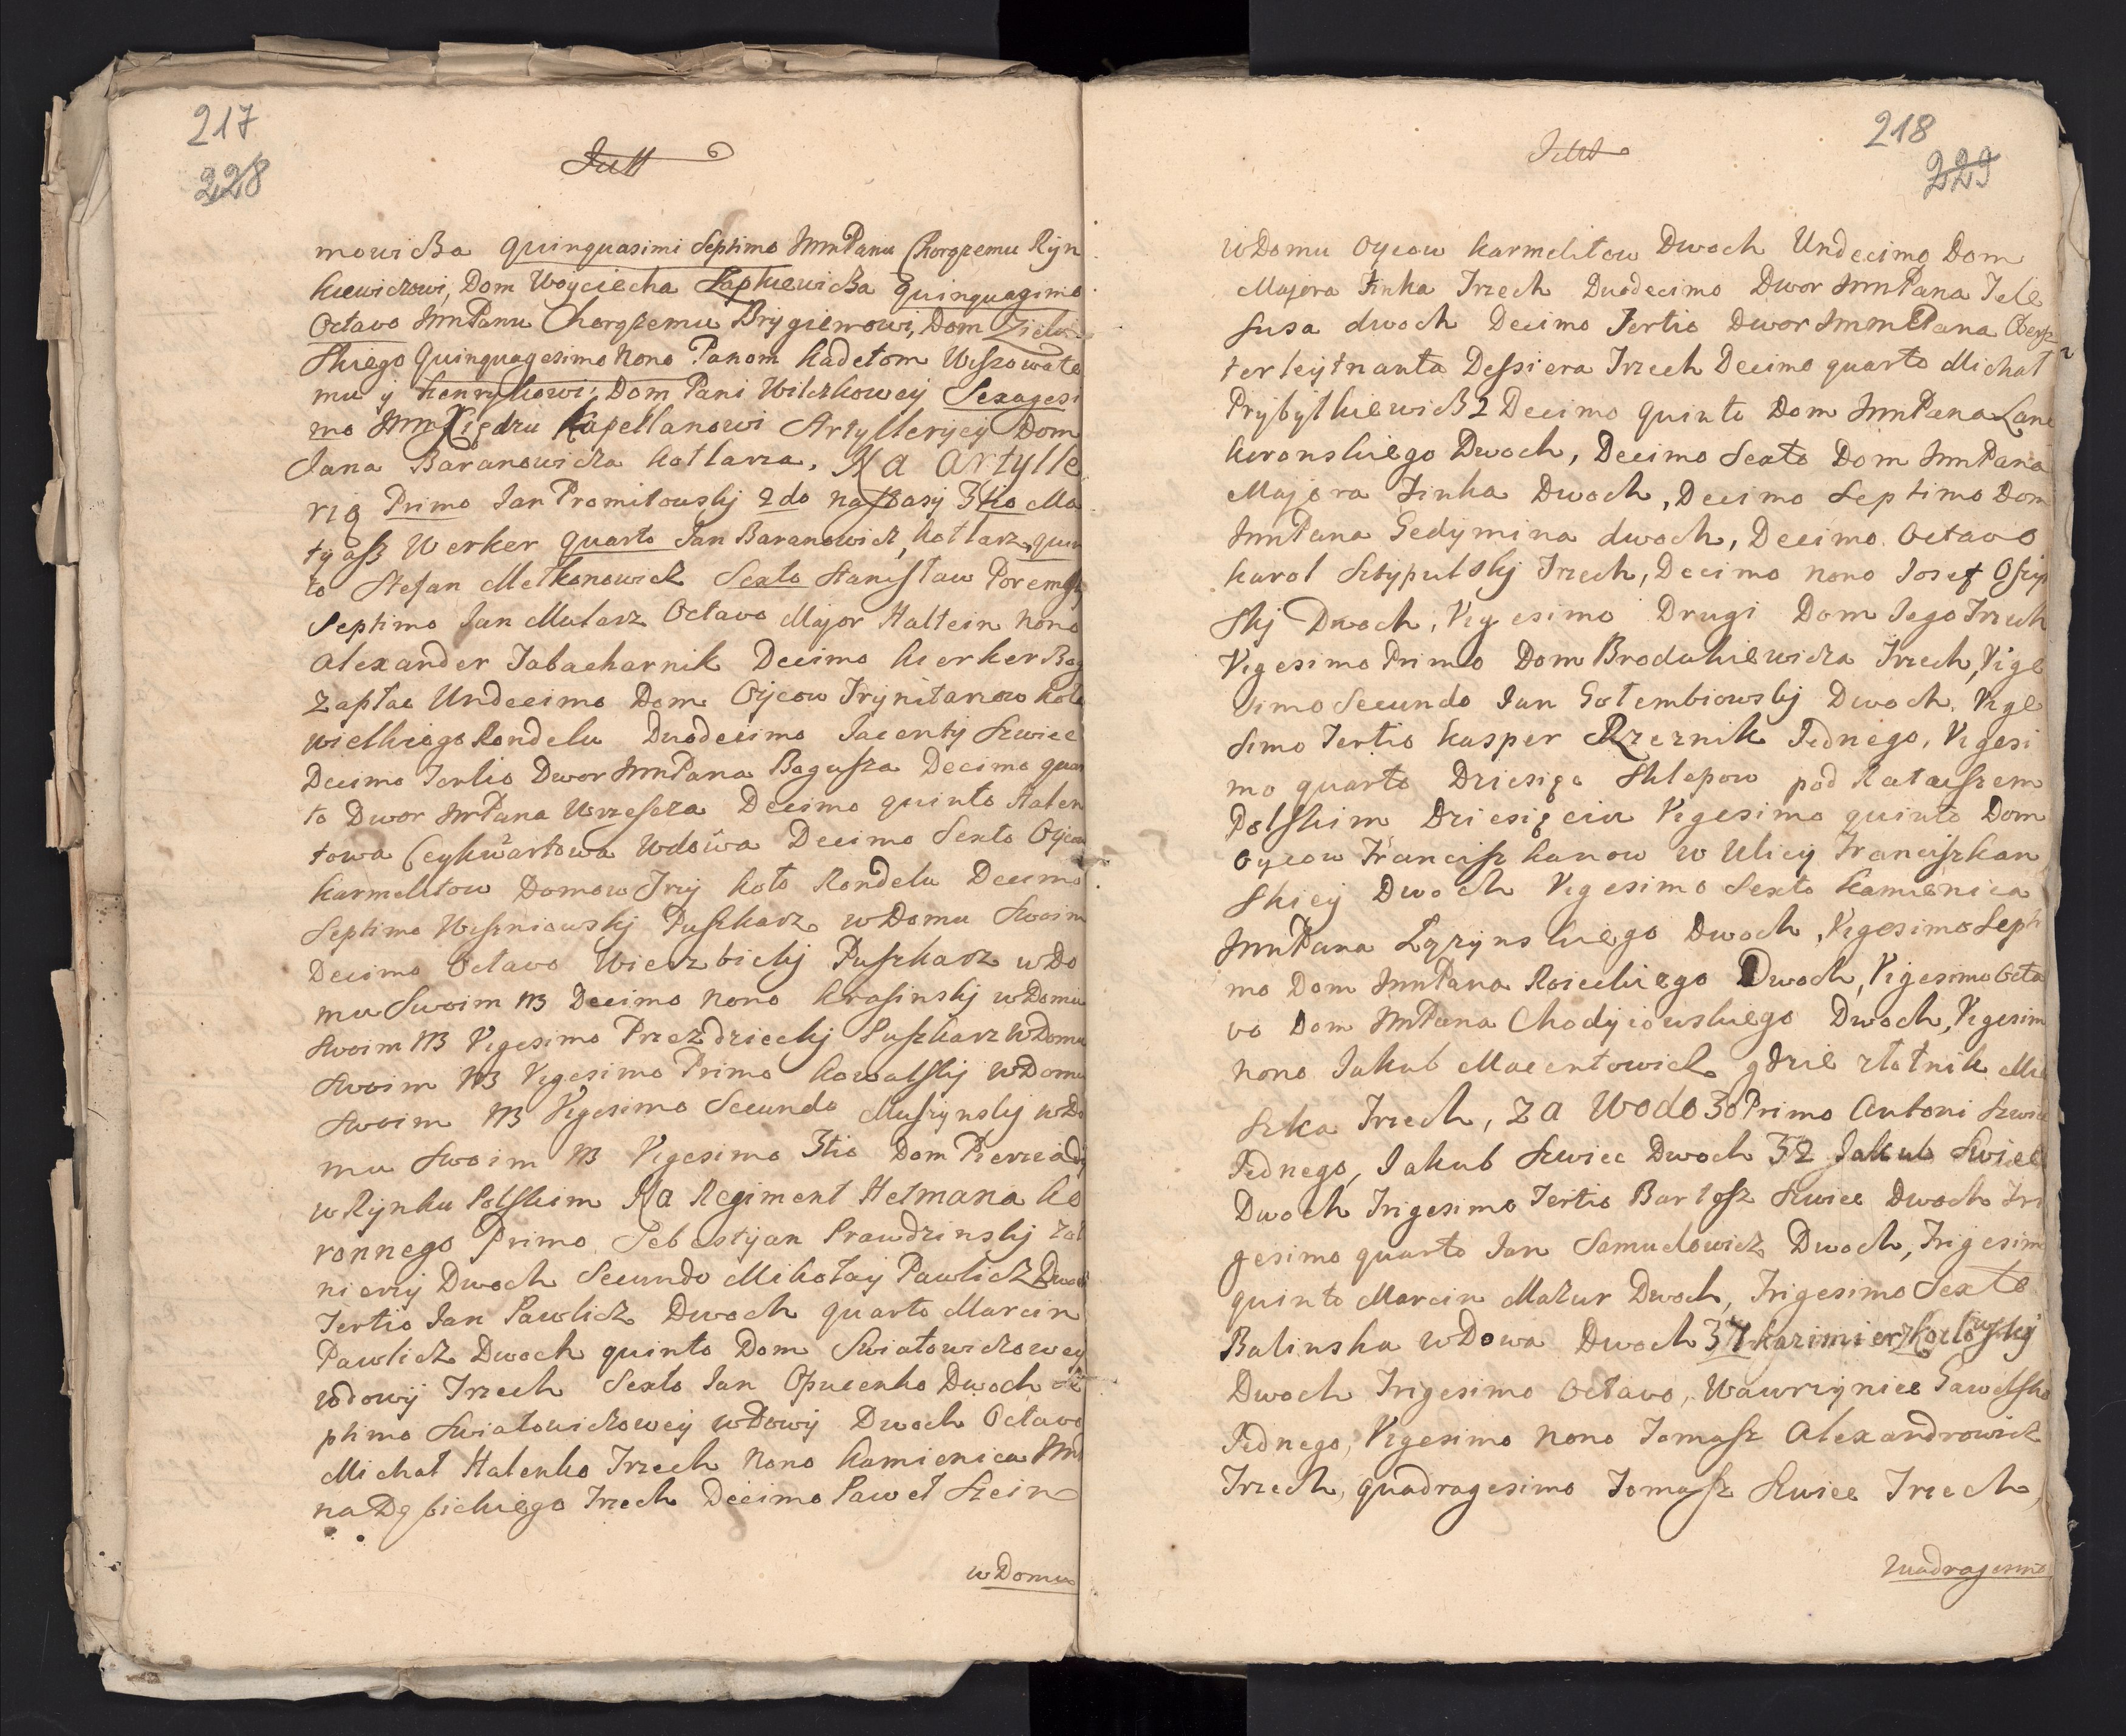 217
228
mowicza quinquasimi Septimo JmnPanu Chorązemu Ryn
kiewiczowi, Dom Woyciecha Łapkiewicza quinquagimo
Octavo JmnPanu Chorązemu Brygierowi, Dom Zielin
skiego Quinquagesimo Nono Panom Kadetom Wiszowate
mu y Henrykowi; Dom Pani Wilczkowey Sexagesi
mo JmnXiędzu Kapellanowi Artylleryey Dom
Jana Baranowicza Kotlarza, Na Artylle
rią Primo Jan Promitouskj 2do 3tio Ma
tyasz Werker quarto Jan Baranowicz, Kotlarz, quin
to Stefan Melkonowicz Sexto Stanisław Poremsk
Septimo Jan Mularz Octavo Major Haltein Nono
Alexander Tabacharnik Decimo Kierker Bog
Zapłac Undecimo Dom Oycow Trynitarzow koło
wielkiego Rondelu Duodecimo Jacenty Szwiec
Decimo Tertio Dwor JmnPana Bogusza Decimo quar
to Dwor JmPana Wrzeszcza Decimo quinto
towa Ceykwartowa Wdowa Decimo Sexto Oycow
Karmelitow Domow Trzy koło Rondelu Decimo
Septimo Wiszniouskj Puszkarz w Domu Swoim
Decimo Octavo Wierzbickj Puszkarz w Do
mu Swoim M3 Decimo Nono Krasinskj w Domu
Swoim M3 Vigesimo Przezdzieckj Puszkarz w Domu
Swoim M3 Vigesimo Primo Kowalskj w Domu
Swoim M3 Vigesimo Secundo Muszynskj w Do
mu Swoim M3 Vigesimo 3tio Dom
w Rynku Polskim Na Regiment Hetmana Ko
ronnego Primo Sebestyan Prawdzinskj zoł
nierzy Dwoch Secundo Mikołay Pawlicz Dwoch
Tertio Jan Pawlicz Dwoch quarto Marcin
Pawlicz Dwoch quinto Dom Swiatowiczowey
wdowy Trzech Sexto Jan Opucenko Dwoch Se
ptimo Swiatowiczowey wdowy Dwoch Octavo
Michał Halenko Trzech Nono Kamienica
na Dębickiego Trzech Decimo Paweł Szein
w Domu
218
229
w Domu Oycow Karmelitow Dwoch Undecimo Dom
Majora Finka Trzech Duodecimo Dwor JmnPana Jele
susa dwoch Decimo Tertio Dwor JmmPana Obersz
terleytnanta Dessiera Trzech Decimo quarto Michał
Prybytkiewicz 2 Decimo quinto Dom JmnPana Lanc
koronskiego Dwoch, Decimo Sexto Dom JmnPana
Majora Finka Dwoch, Decimo Septimo Dom
JmnPana Gedymina dwoch, Decimo Octavo
Karol Sczypulskj Trzech, Decimo Nono Josef Oszyp
skj Dwoch, Vigesimo Drugi Dom Jego Trzech
Vigesimo Primo Dom Brodukiewicza Trzech, Vige
simo Secundo Jan Gołembiowskj Dwoch, Vige
simo Tertio Kasper Rzeznik Jednego, Vigesi
mo quarto Dziesięc Sklepow pod Ratuszem
Polskim Dziesięciu Vigesimo quinto Dom
Oycow Franciszkanow w Ulicy Franciszkan
skiey Dwoch Vigesimo Sexto Kamienica
JmnPana Łązynskiego Dwoch, Vigesimo Septi
mo Dom JmnPana Rosieckiego Dwoch, Vigesimo Octa
vo Dom JmPana Chodyiouskiego Dwoch, Vigesim
nono Jakub Macentowicz gdzie złotnik Mie
szka Trzech, Za Wodo 30 Primo Antoni Szwiec
Jednego, Jakub Szwiec Dwoch 32 Jakub Szwiec
Dwoch Trigesimo Tertio Bartosz Szwiec Dwoch Tri
gesimo quarto Jan Samuelowicz Dwoch, Trigesimo
quinto Marcin Mazur Dwoch, Trigesimo Sexto
Balinska wDowa Dwoch 37 Kazimierz Kozlowskj
Dwoch Trigesimo Octavo, Wawrzyniec Gawelsko
Jednego, Vigesimo Nono Tomasz Alexandrowicz
Trzech, quadragesimo Tomasz Szwiec Trzech,
quadragesimo